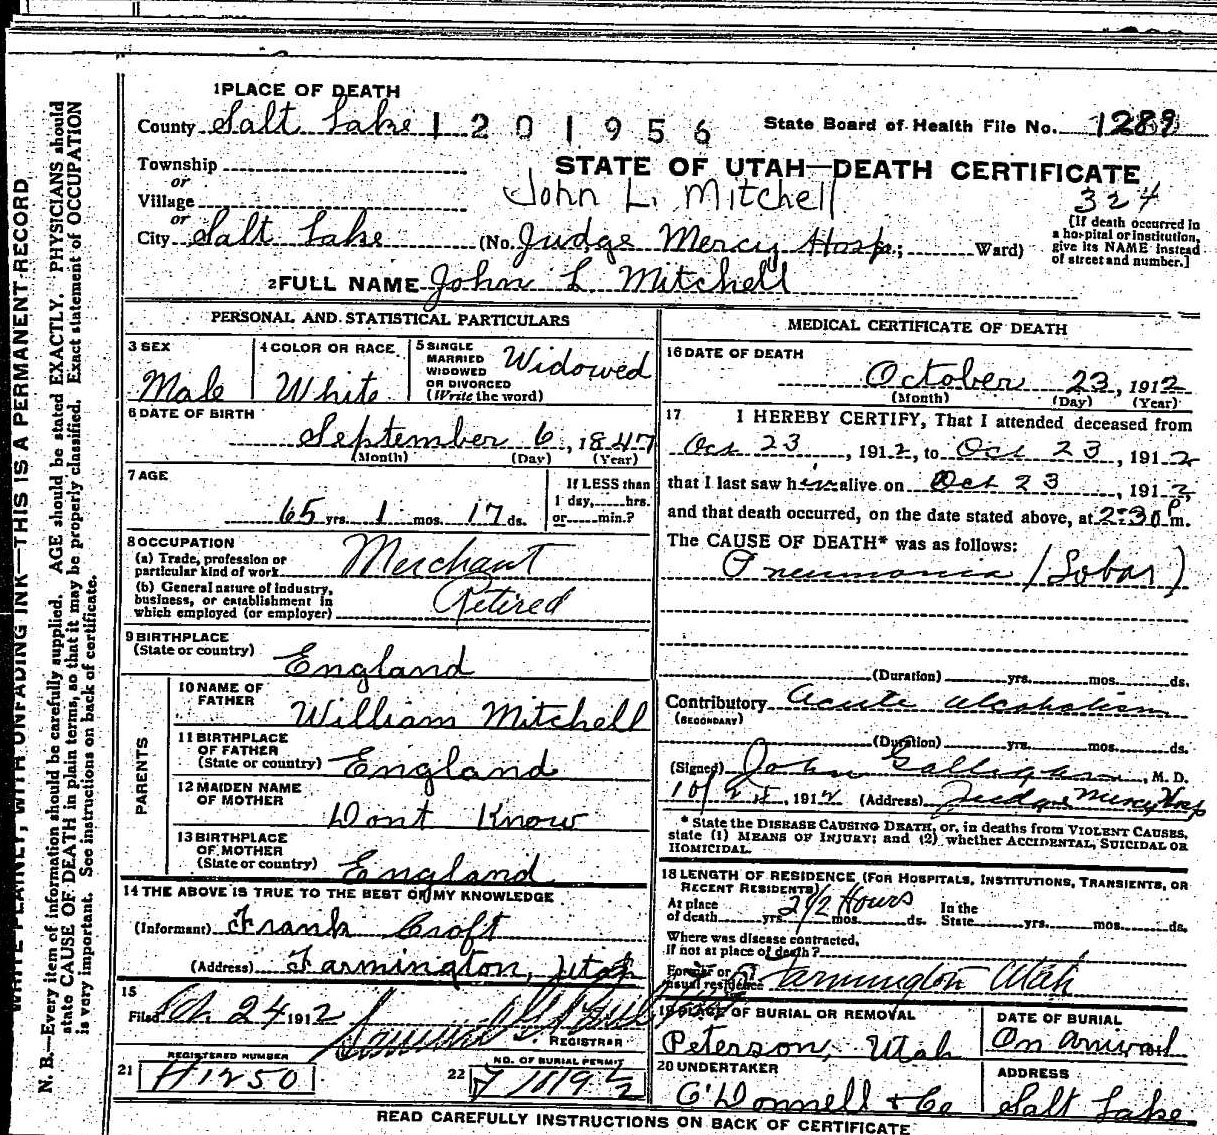 1 PLACE OF DEATH
County Salt Lake 1201956 State Board of Health File No. 1289
Township
or
Village
or
City Salt Lake
STATE OF UTAH—DEATH CERTIFICATE
John L. Mitchell 324
(No. Judge Mercy Hosp; Ward)
(If death occurred in
a hospital or institution,
give its NAME instead
of street and number.]
2 FULL NAME John L Mitchell
PERSONAL AND STATISTICAL PARTICULARS
3 SEX
Male
4 COLOR OR RACE
White
5 SINGLE
MARRIED
WIDOWED
OR DIVORCED
(Write the word)
Widowed
6 DATE OF BIRTH
September 6, 1847
(Month) (Day) (Year)
7 AGE
65 yrs. 1 mos. 17 ds.
If LESS than
1 day, hrs.
or min.?
8 OCCUPATION
(a) Trade, profession or
particular kind of work Merchant
(b) General nature of industry,
business, or establishment in
which employed (or employer) Retired
9 BIRTHPLACE
(State or country) England
PARENTS
10 NAME OF
FATHER William Mitchell
11 BIRTHPLACE
OF FATHER
(State or country) England
12 MAIDEN NAME
OF MOTHER Dont Know
13 BIRTHPLACE
OF MOTHER
(State or country) England
14 THE ABOVE IS TRUE TO THE BEST OF MY KNOWLEDGE
(Informant) Frank Croft
(Address) Farmington, Utah
15
Filed Oct 24 1912
REGISTRAR
REGISTERED NUMBER
21 H1250
NO. OF BURIAL PERMIT
22
MEDICAL CERTIFICATE OF DEATH
16 DATE OF DEATH
October 23, 1912
(Month) (Day) (Year)
17 I HEREBY CERTIFY, That I attended deceased from
Oct 23, 1912, to Oct 23, 1912
that I last saw him alive on Oct 23, 1912,
and that death occurred, on the date stated above, at 2:30 P m.
The CAUSE OF DEATH* was as follows:
Pneumonia (Lobar)
(Duration) yrs. mos. ds.
Contributory Acute Alcoholism
(SECONDARY)
(Duration) yrs. mos. ds.
(Signed) John Galligan, M. D.
1912 (Address) Judge Mercy Hosp
* State the DISEASE CAUSING DEATH, or, in deaths from VIOLENT CAUSES,
state (1) MEANS OF INJURY; and (2) whether ACCIDENTAL, SUICIDAL OR
HOMICIDAL.
18 LENGTH OF RESIDENCE (FOR HOSPITALS, INSTITUTIONS, TRANSIENTS, OR
RECENT RESIDENTS)
At place
of death yrs. 2 1/2 Hours mos. ds. In the
State yrs. mos. ds.
Where was disease contracted,
if not at place of death?
Former or
usual residence Farmington Utah
19 PLACE OF BURIAL OR REMOVAL
Peterson, Utah
DATE OF BURIAL
On arrival
20 UNDERTAKER
O'Donnell & Co
ADDRESS
Salt Lake
READ CAREFULLY INSTRUCTIONS ON BACK OF CERTIFICATE
WRITE PLAINLY, WITH UNFADING INK—THIS IS A PERMANENT RECORD
N. B.—Every item of information should be carefully supplied. AGE should be stated EXACTLY. PHYSICIANS should
state CAUSE OF DEATH in plain terms, so that it may be properly classified. Exact statement of OCCUPATION
is very important. See instructions on back of certificate.